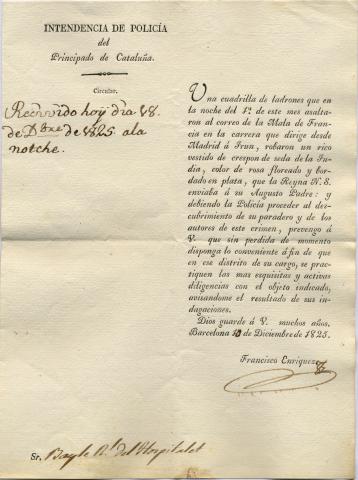 INTENDENCIA DE POLICÍA
del
Principado de Cataluña.
Circular.
Recivido hoy dia 18.
de Dbre de 1825 ala
notche.
Una cuadrilla de ladrones que en
la noche del 1.º de este mes asalta-
ron al correo de la Mala de Fran-
cia en la carrera que dirige desde
Madrid á Irun, robaron un rico
vestido de crespon de seda de la In-
dia, color de rosa floreado y bor-
dado en plata, que la Reyna N. S.
enviaba á su Augusto Padre: y
debiendo la Policía proceder al des-
cubrimiento de su paradero y de los
autores de este crimen, prevengo á
V. que sin perdida de momento
disponga lo conveniente á fin de que
en ese distrito de su cargo, se prac-
tiquen las mas esquisitas y activas
diligencias con el objeto indicado,
avisandome el resultado de sus in-
dagaciones.
Dios guarde á V. muchos años.
Barcelona 10 de Diciembre de 1825.
Francisco Enriquez
Sr. Bayle Rl. del Hospitalet